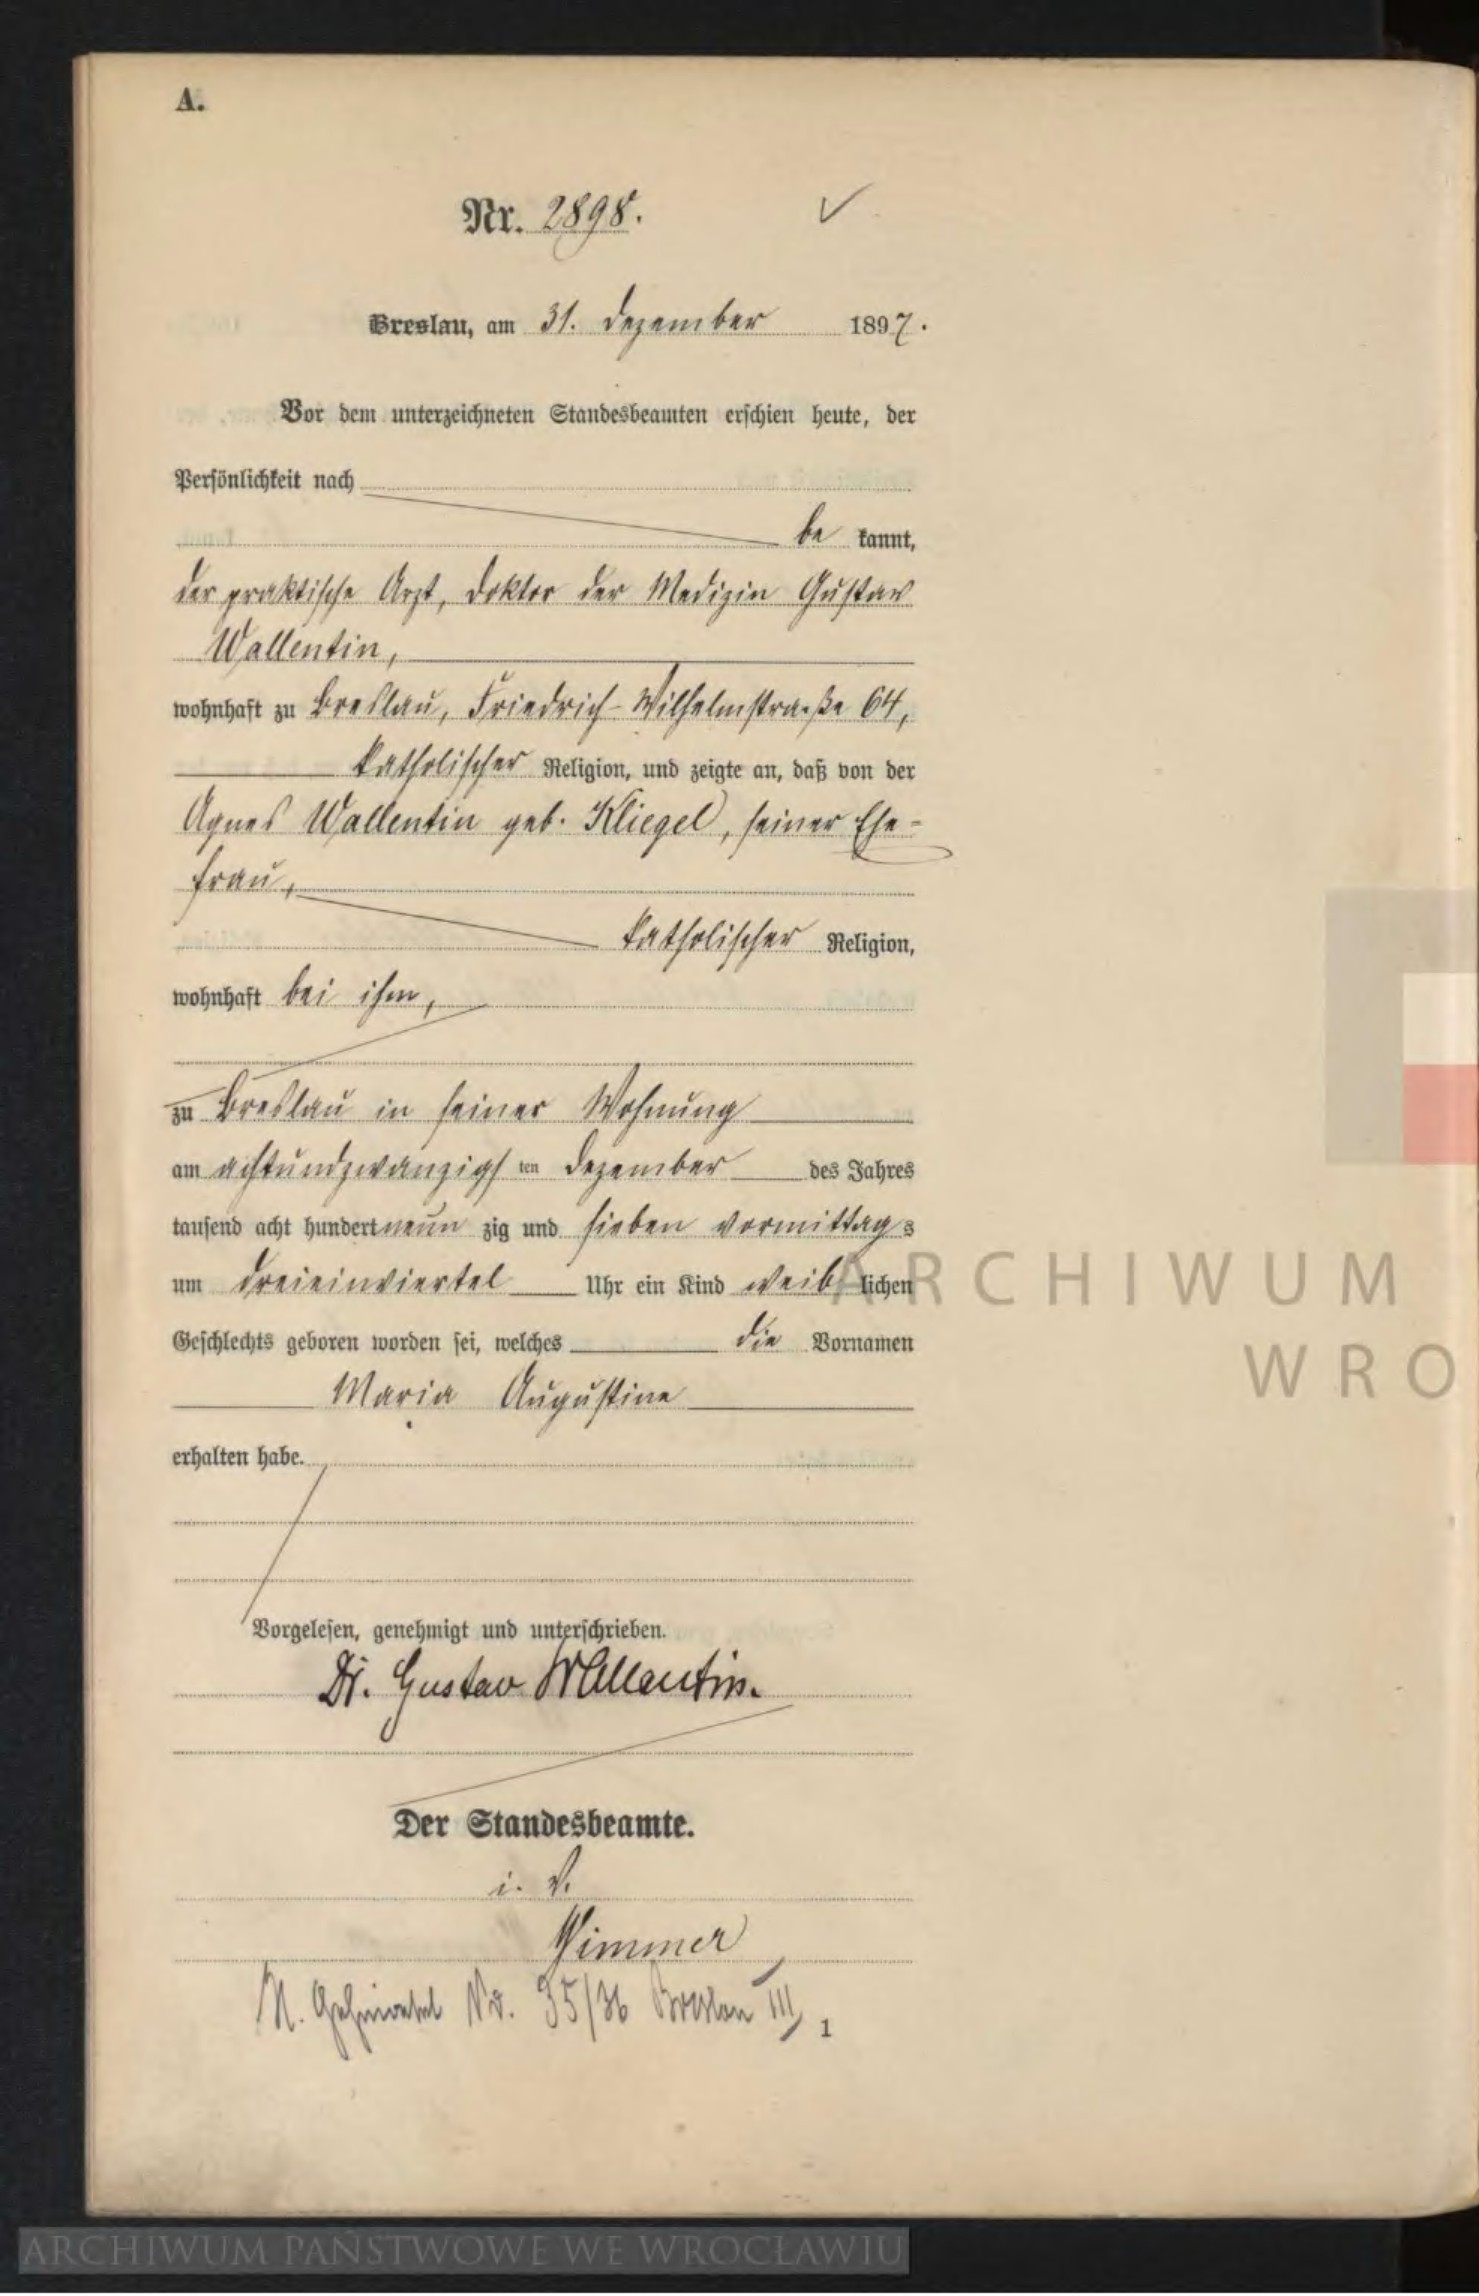 A.
Nr. 2898.
Breslau, am 31. Dezember 1897.
Vor dem unterzeichneten Standesbeamten erschien heute, der
Persönlichkeit nach
be kannt,
der praktische Arzt, Doktor der Medizin Gustav
Wallentin,
wohnhaft zu Breslau, Friedrich-Wilhelmstraße 64,
katholischer Religion, und zeigte an, daß von der
Agnes Wallentin geb. Kliegel, seiner Ehe-
frau,
katholischer Religion,
wohnhaft bei ihm,
zu Breslau in seiner Wohnung
am achtundzwanzigsten Dezember des Jahres
tausend acht hundert neun zig und sieben vormittags
um dreieinviertel Uhr ein Kind weiblichen
Geschlechts geboren worden sei, welches die Vornamen
Maria Augustine
erhalten habe.
Vorgelesen, genehmigt und unterschrieben.
Dr. Gustav Wallentin.
Der Standesbeamte.
i. V.
35/36 Breslau III
1
ARCHIWUM
WRO
ARCHIWUM PAŃSTWOWE WE WROCŁAWIU